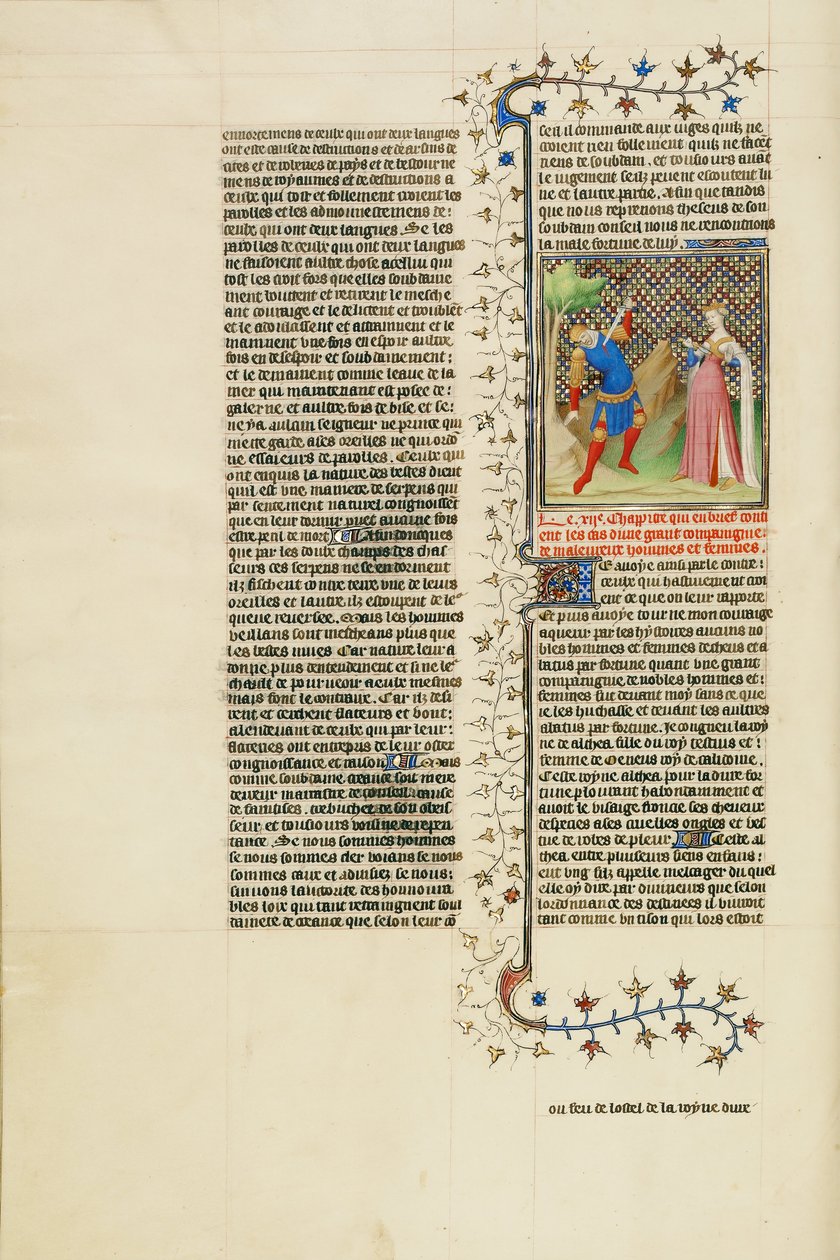 ennortemens de ceulx qui ont deux langues
ont este cause de destructions et de arsins de
cites et de voleries de pays et de bestourne
mens de royaumes et de destructions a
ceulx qui tost et follement croient les
parolles et les admounestemens de:
ceulx qui ont deux langues. Se les
parolles de ceulx qui ont deux langues
ne faisoient aultre chose a celluy qui
tost les croit fors que elles soubdaine
ment boutent et retirent le mesche
ant couraige et le delictent et troublet
et le adoulcissent et attraiuent et le
mainnent une fois en espoir aultre
fois en desespoir et soubdainement:
et le demainent comme leaue de la
mer qui maintenant est posee de:
galerne et aultre fois de bise et se:
ne y a aulcun seigneur ne prince qui
mette garde a ses oreilles ne qui ordo
ne essaieurs de parolles. Ceulx qui
ont enquis la nature des bestes dient
quil est une maniere de serpens qui
par sentement naturel congnoisset
que en leur dormir puet aucune fois
estre peril de mort Afin doncques
que par les doulx champs des chas
seurs ces serpens ne se endorment
ilz fischent contre terre une de leurs
oreilles et lautre ilz estoupent de le
queue reversee. Mais les hommes
veillans sont mescheans plus que
les bestes mues Car nature leur a
donne plus dentendement et si ne le
chault de pourveoir a eulx mesmes
mais font le contraire. Car ilz desi
rent et cerchent flateurs et bout:
alendevant de ceulx qui par leur:
flateries ont entrepris de leur oster
congnoissance et raison Mais
comme soubdaine creance soit mere
derreur marrastre de conseil cause
de faintises. trebuchet de son obeis
seur et tousiours voisine de repen
tance. Se nous sommes hommes
se nous sommes cler voians se nous
sommes caux et advisiez se nous:
suivons lauctorite des honnoura
bles loix qui tant restraingnent soub
dainete de creance que selon leur co
cen il commande aux iuges quilz ne
croient rien follement quilz ne facet
riens de soubdain. et tousiours avat
le iugement seilz peuent escoutent lu
ne et lautre partie. Afin que tandis
que nous reprenons theseus de son
soubdain conseil nous ne rencontrions
la male fortune de luy.
Le. xiie. Chappitre qui en brief conti
ent les cas dune grant compaingnie:
de maleureux hommes et femmes.
Ie avoye ainsi parle contre:
ceulx qui hastivement croi
ent ce que on leur rapporte
Et puis avoye tourne mon couraige
a querir par les hystoires aucuns no
bles hommes et femmes decheus et a
batus par fortune quant une grant
compaingnie de nobles hommes et:
femmes fut devant moy sans ce que
ie les huchasse et devant les aultres
abatus par fortune. Je congneu la roy
ne de althea fille du roy testius et:
femme de Oeneus roy de calidoine.
Ceste royne althea pour la dure for
tune plourant habondamment et
avoit le visaige fronsie ses cheveux
despecies a ses cruelles ongles et ves
tue de robes de pleur Ceste al
thea entre plusieurs siens enfans:
ent ung filz appelle meleager du quel
elle oy dire par divineurs que selon
lordonnance des destinees il vivroit
tant comme un tison qui lors estoit
ou feu de lostel de la royne dure